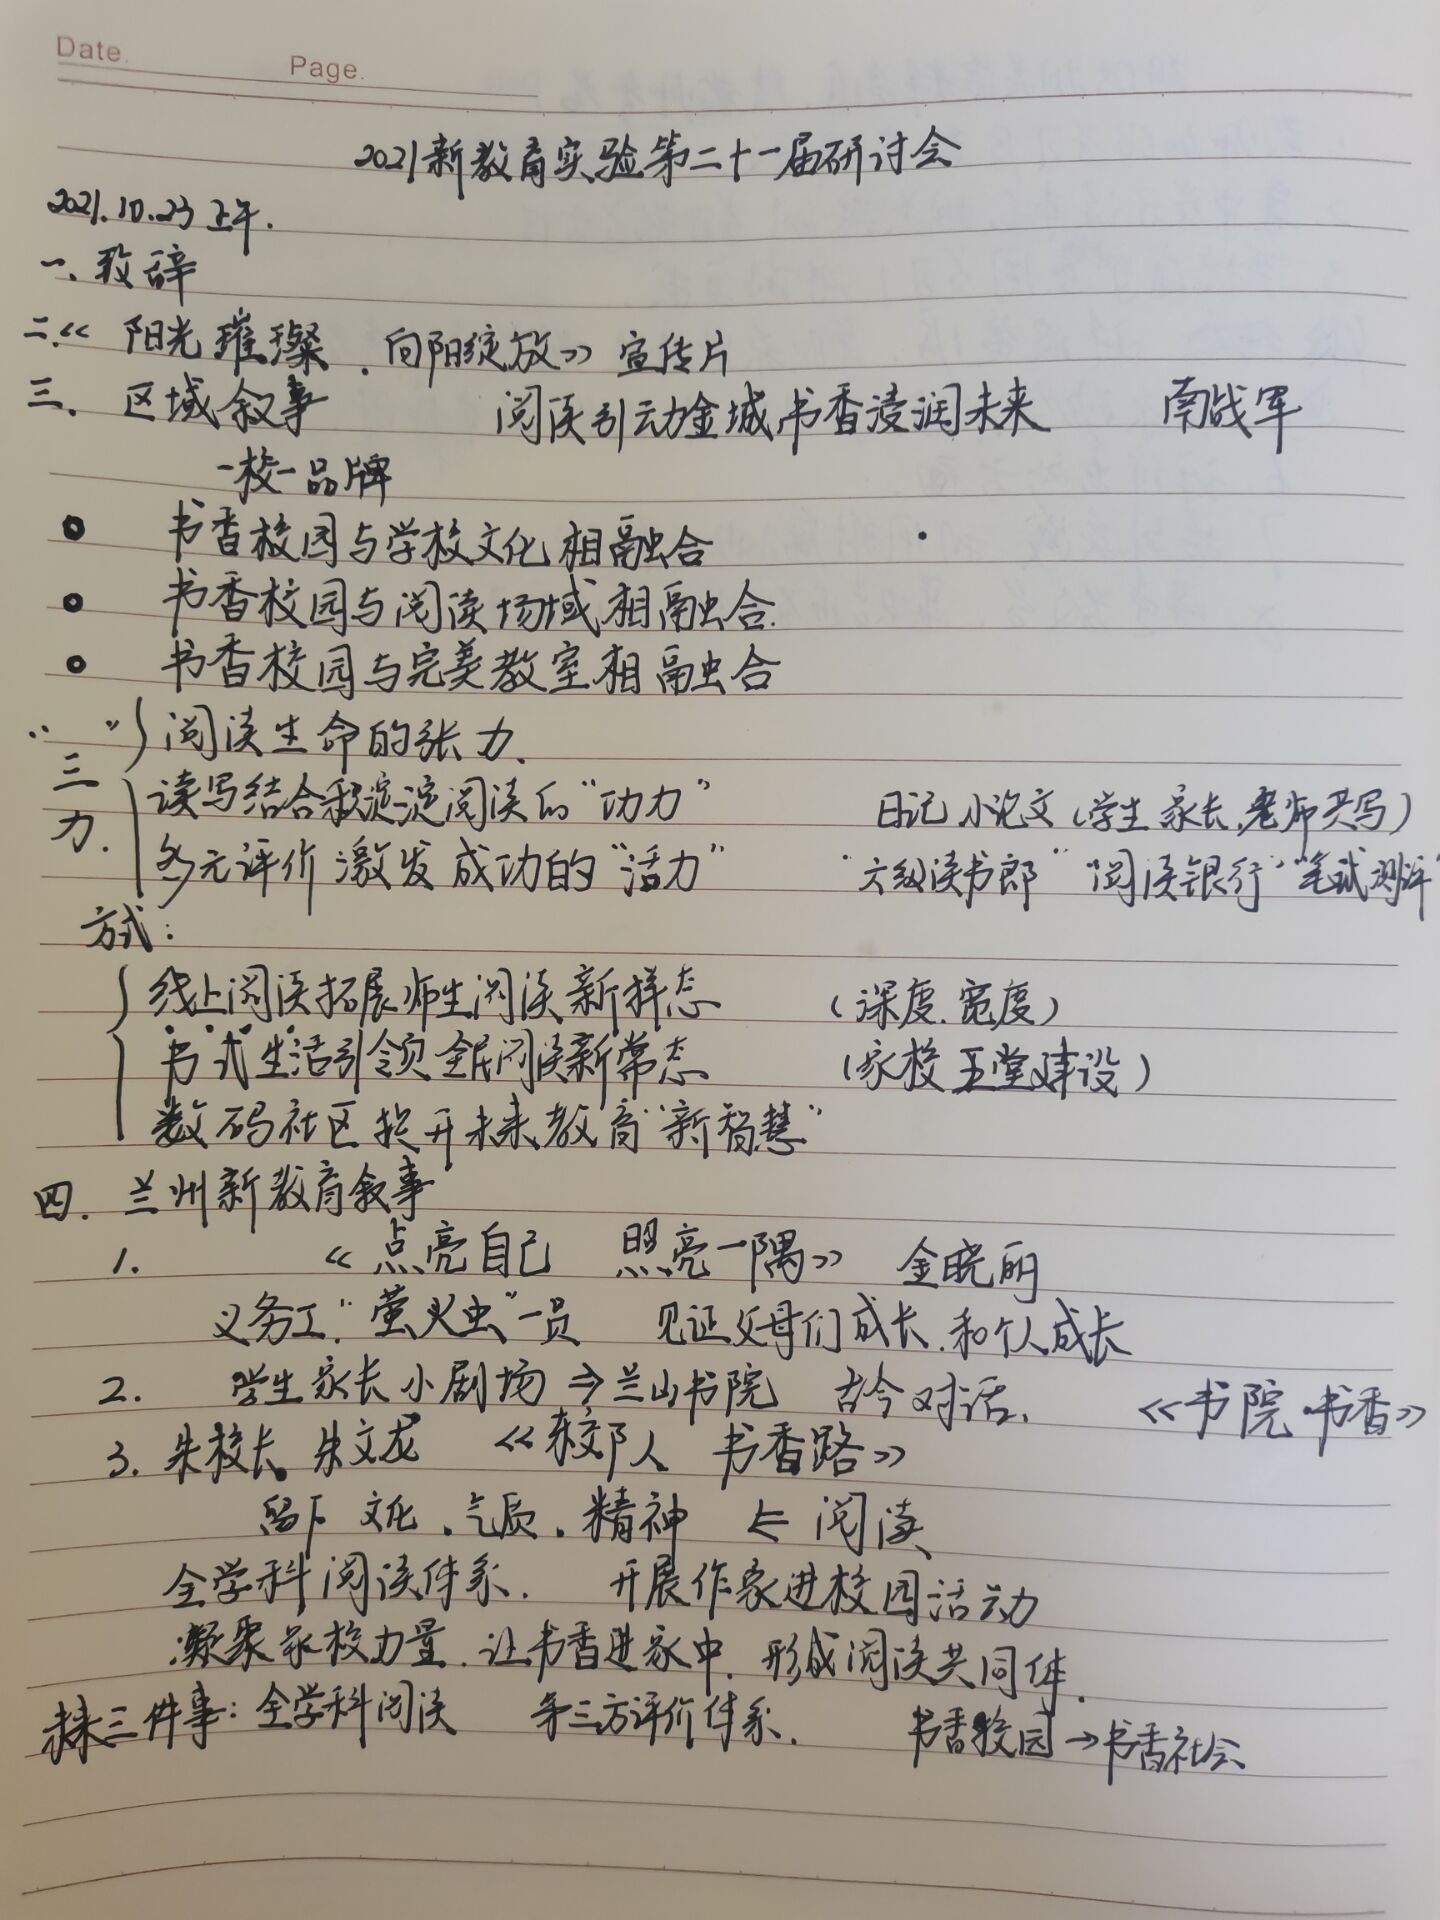 Date.
Page.
2021新教育实验第二十一届研讨会
2021.10.23 上午.
一.致辞
二.《阳光璀璨.向阳绽放》宣传片
三.区域叙事 阅读引动金城书香浸润未来 南战军
一校一品牌
书香校园与学校文化相融合
书香校园与阅读场域相融合.
书香校园与完美教室相融合
“三力.” 阅读生命的张力.
读写结合积淀阅读的“功力” 日记 小论文(学生 家长.老师共写)
多元评价激发成功的“活力” “六级读书郎” “阅读银行” “笔试测评”
方式:
线上阅读拓展师生阅读新样态 (深度.宽度)
书式生活引领全民阅读新常态 (家校 五堂建设)
数码社区揿开未来教育“新智慧”
四.兰州新教育叙事
1. 《点亮自己 照亮一隅》 金晓丽
义务工.“萤火虫”一员 见证父母们成长.和个人成长
2. 学生家长小剧场⇒兰山书院 古今对话. 《书院.书香》
3. 朱校长.朱文龙 《校人 书香路》
留下 文化.气质.精神 ⇐ 阅读
全学科阅读体系. 开展作家进校园活动
凝聚家校力量.让书香进家中.形成阅读共同体.
未来三件事:全学科阅读 第三方评价体系. 书香校园→书香社会